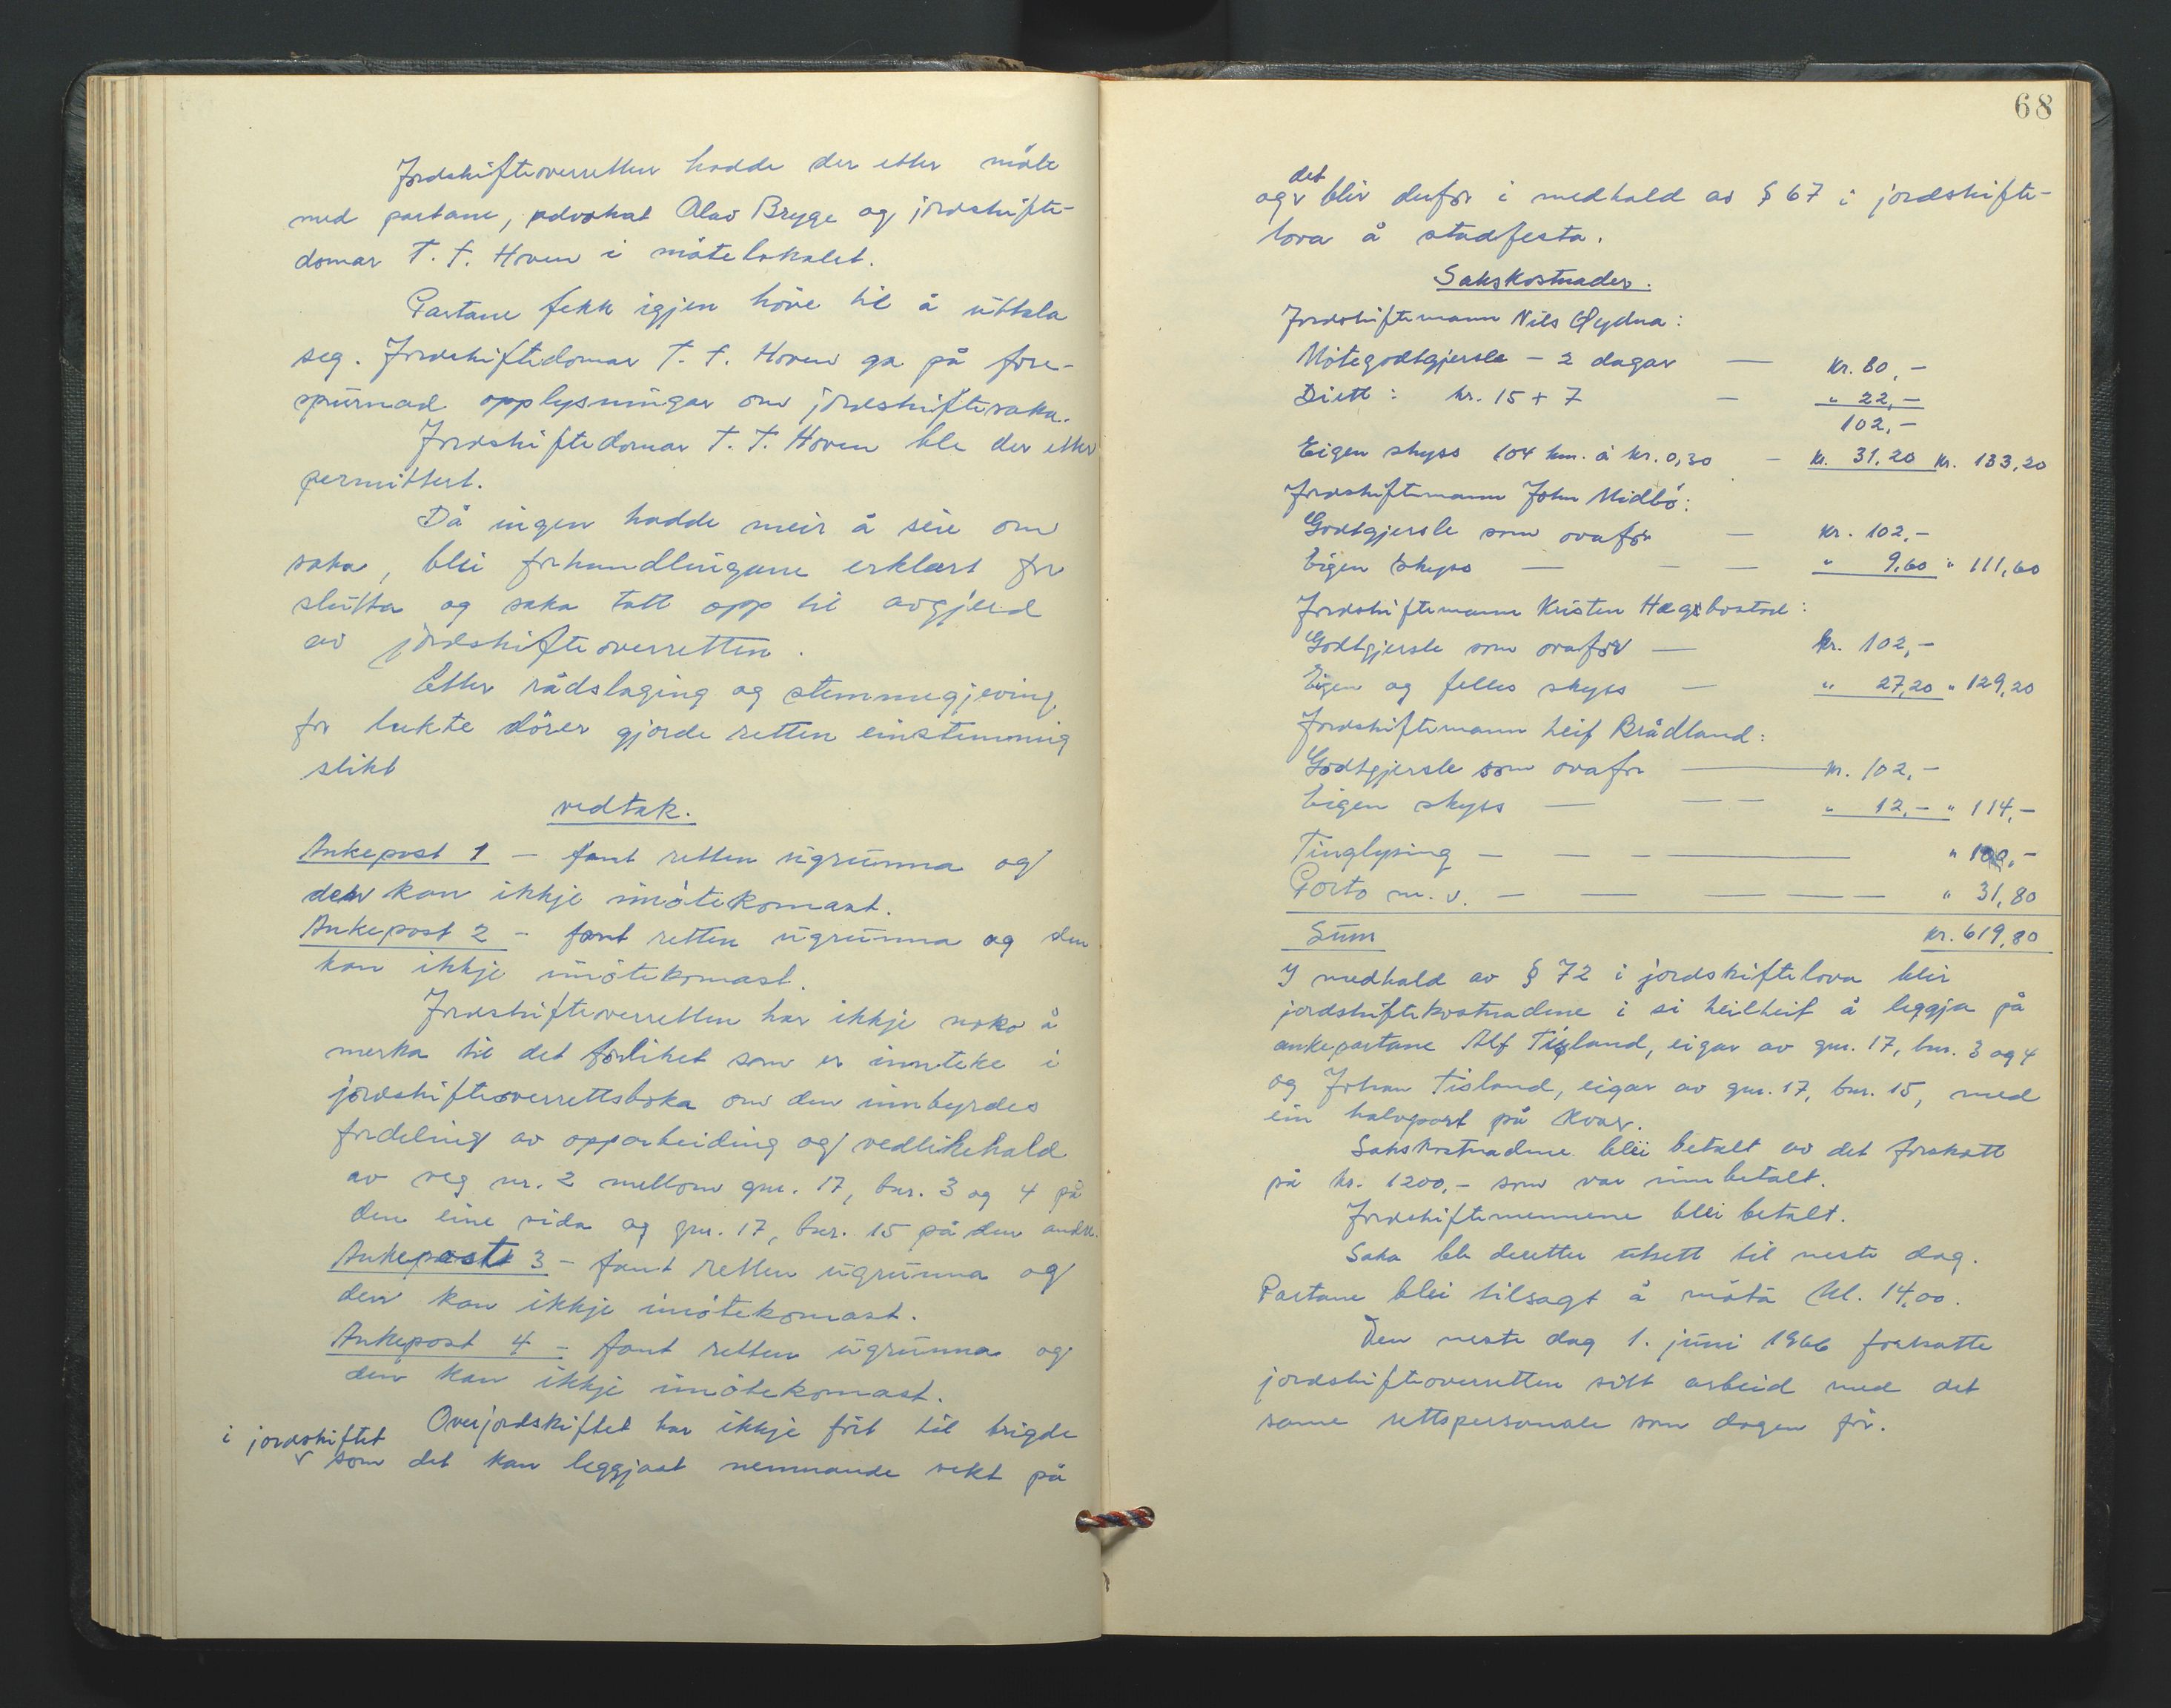 Jordskifteoverretten hadde der etter møte
med partane, advokat Olav Brygge og jordskifte-
domar T. T. Hoven i møtelokalet.
Partane fekk igjen høve til å uttala
seg. Jordskiftedomar T. T. Hoven ga på fore-
spurnad opplysningar om jordskiftesaka.
Jordskiftedomar T. T. Hoven ble der etter
permittert.
Då ingen hadde meir å seie om
saka, blei forhandlingane erklært for
slutta og saka tatt opp til avgjerd
av jordskifteoverretten.
Etter rådslaging og stemmegjeving
for lukte dører gjorde retten einstemmig
slikt
vedtak.
Ankepost 1 - fant retten ugrunna og
den kan ikkje imøtekomast.
Ankepost 2 - fant retten ugrunna og den
kan ikkje imøtekomast.
Jordskifteoverretten har ikkje noko å
merka til det forliket som er innteke i
jordskifteoverrettsboka om den innbyrdes
fordeling av opparbeiding og vedlikehald
av veg nr. 2 mellom gnr. 17, bnr. 3 og 4 på
den eine sida og gnr. 17, bnr. 15 på den andre.
Ankepost 3 - fant retten ugrunna og
den kan ikkje imøtekomast.
Ankepost 4 - fant retten ugrunna og
den kan ikkje imøtekomast.
Overjordskiftet har ikkje ført til brigde
i jordskiftet
som det kan leggjast nemnande vekt på
68
det
og blir derfor i medhald av § 67 i jordskifte-
lova å stadfesta.
Sakskostnader.
Jordskiftemann Nils Øydna:
Møtegodtgjersle - 2 dagar — kr. 80,-
Diett: kr. 15 + 7 - " 22,-
102,-
Eigen skyss 104 km. à kr. 0,30 - kr. 31,20 kr. 133,20
Jordskiftemann John Midbø:
Godtgjersle som ovafor — kr. 102,-
Eigen skyss — - — " 9,60 " 111,60
Jordskiftemann Kristen Hægebostad:
Godtgjersle som ovafor — kr. 102,-
Eigen og felles skyss — " 27,20 " 129,20
Jordskiftemann Leif Brådland:
Godtgjersle som ovafor — kr. 102,-
Eigen skyss — — — " 12,- " 114,-
Tinglysing — — - — " 100,-
Porto m. v. — — — — — " 31,80
Sum kr. 619,80
I medhald av § 72 i jordskiftelova blir
jordskiftekostnadene i si heilheit å leggja på
ankepartane Alf Tisland, eigar av gnr. 17, bnr. 3 og 4
og Johan Tisland, eigar av gnr. 17, bnr. 15, med
ein halvpart på kvar.
Sakskostnadene blei betalt av det forskott
på kr. 1200,- som var innbetalt.
Jordskiftemennene blei betalt.
Saka ble deretter utsett til neste dag.
Partane blei tilsagt å møta kl. 14,00.
Den neste dag 1. juni 1966 forsatte
jordskifteoverretten sitt arbeid med det
same rettspersonale som dagen før.